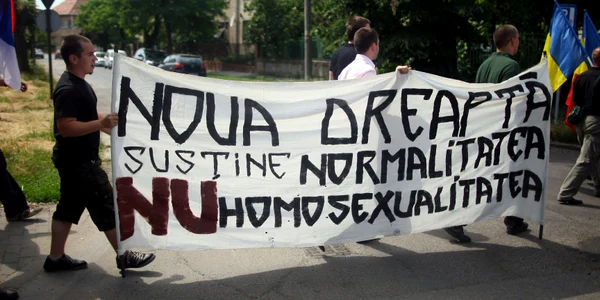 NOUA DREAPTĂ
SUSȚINE NORMALITATEA
NU HOMOSEXUALITATEA